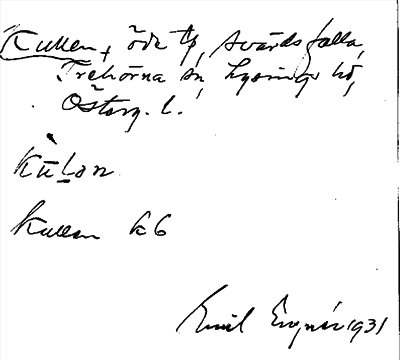 Kullen, öde tp, Svärdsfalla,
Trehörna sn, Lysings hd,
Österg. l.
Kullen k6
Emil 1931